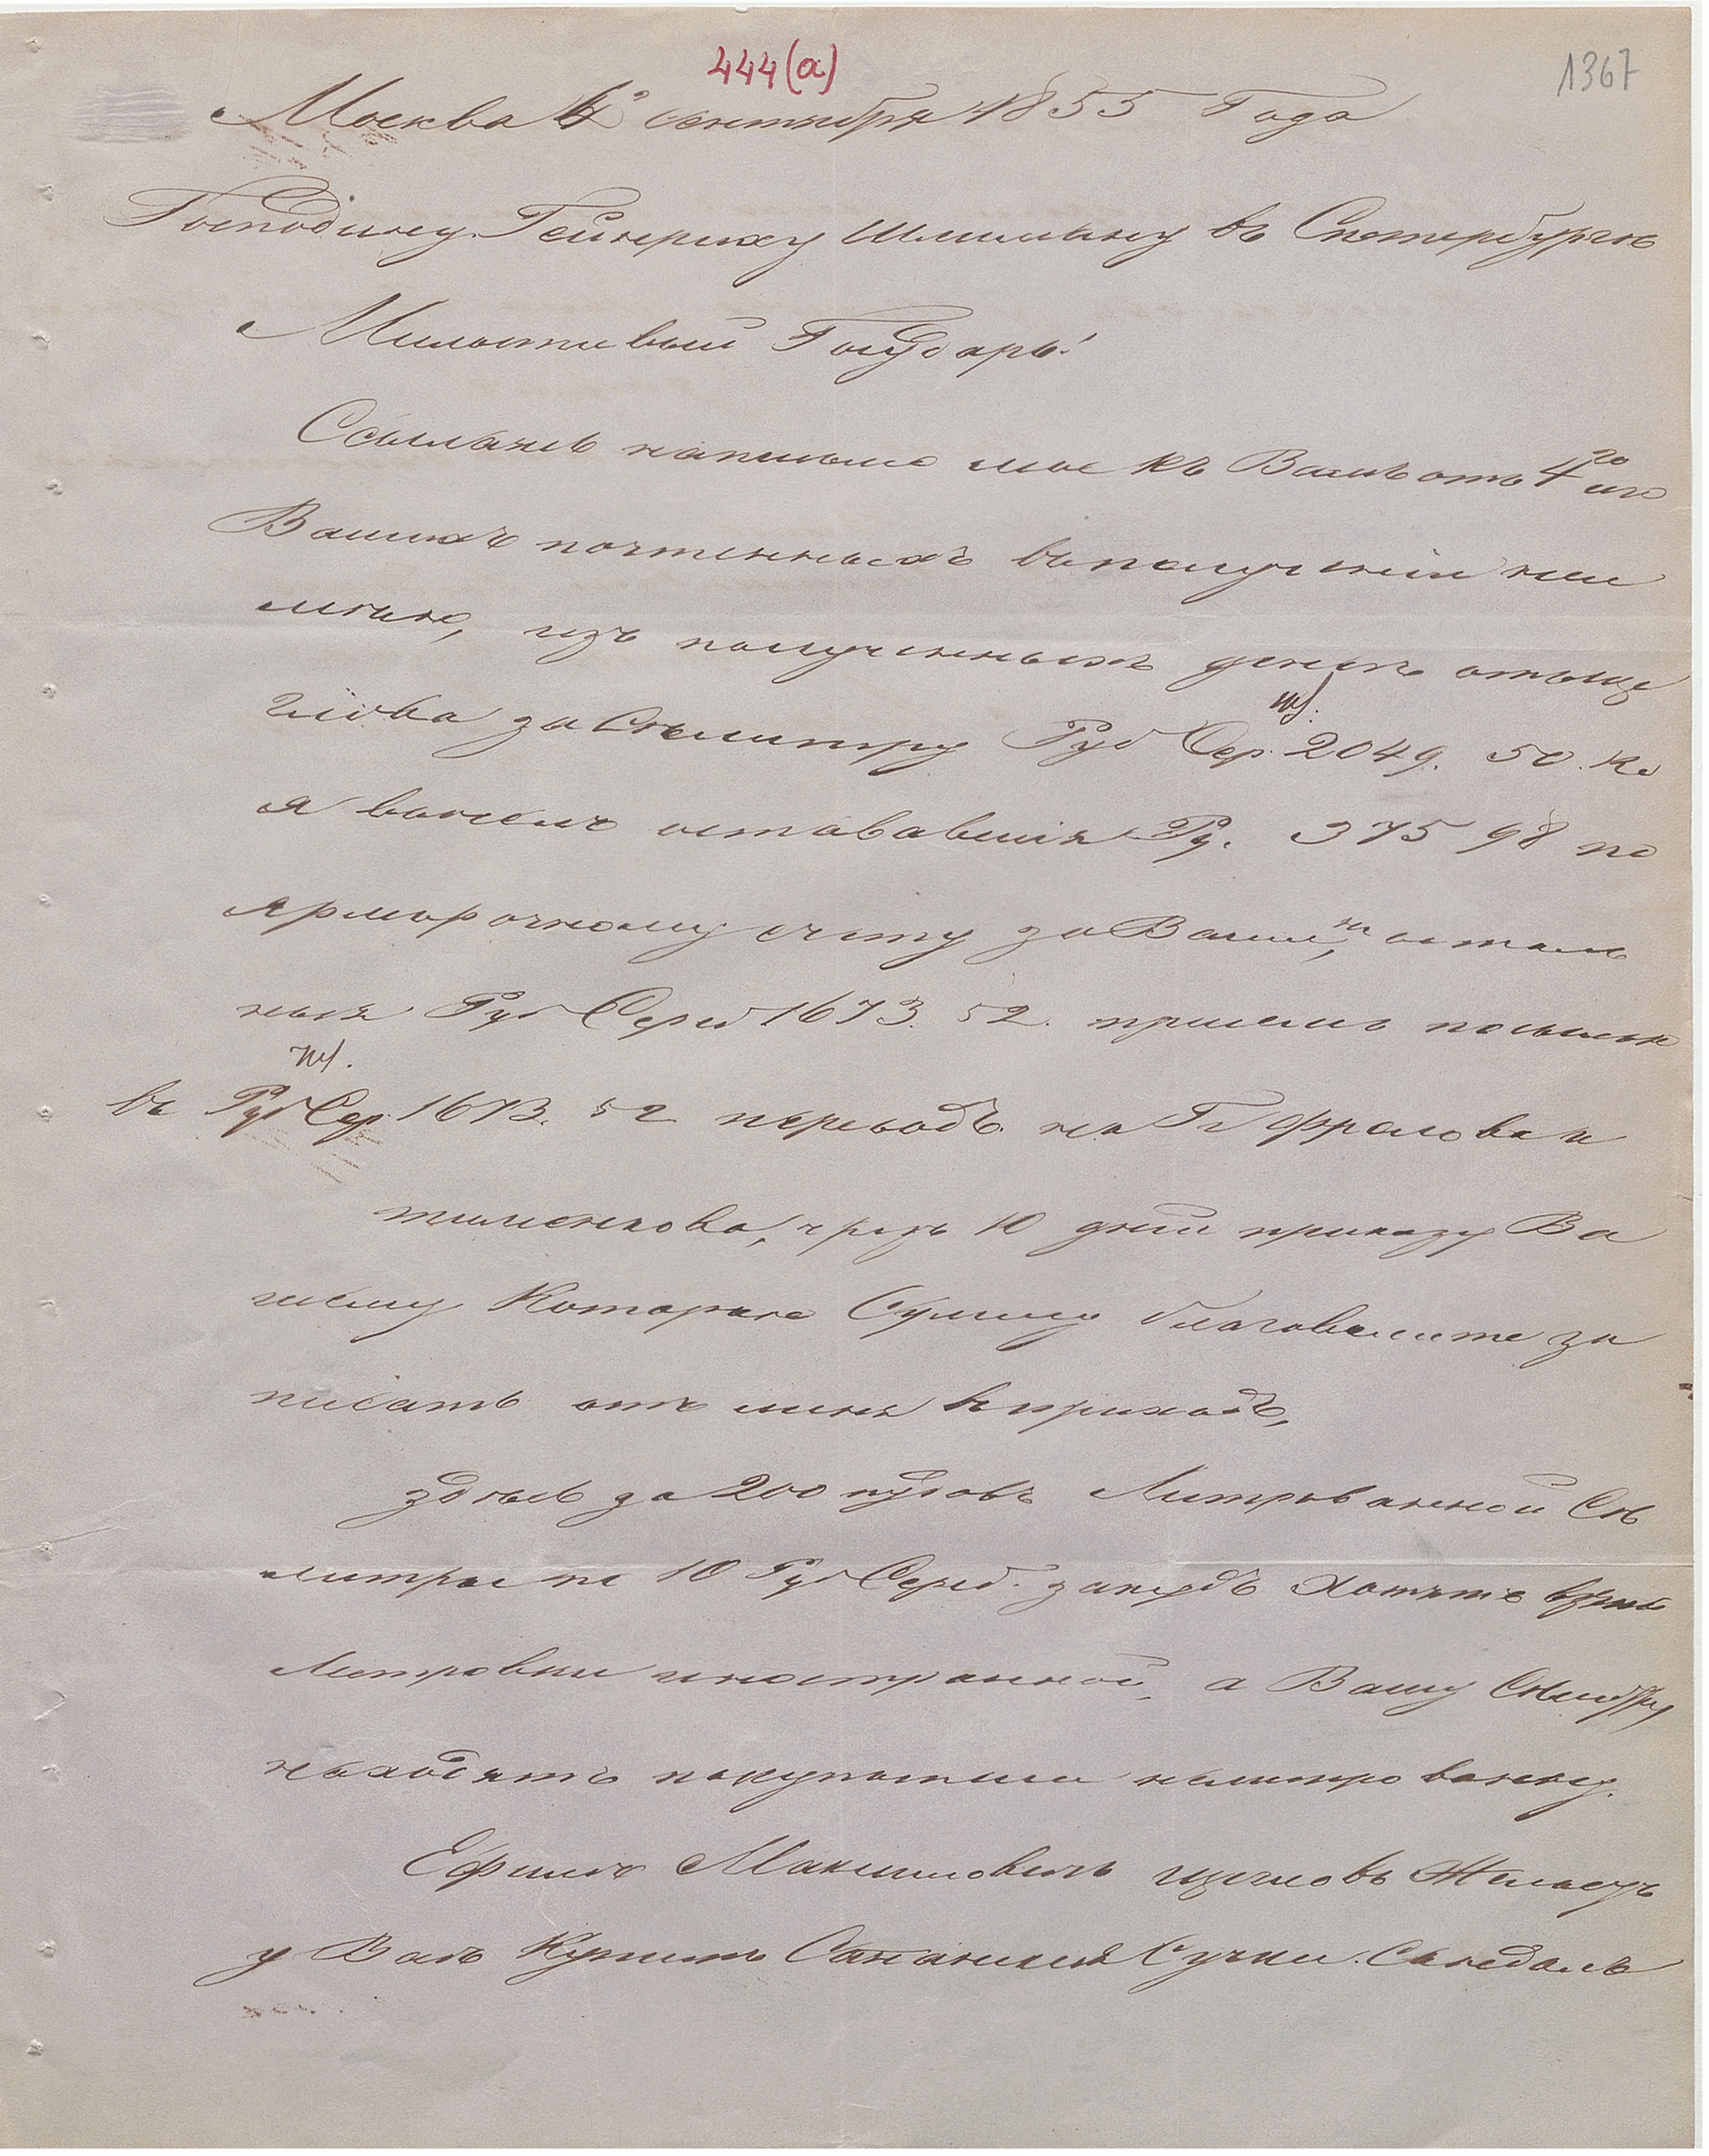 444(a)
1367
Москва 6º сентября 1855 Года
Господину Гейнриху Шлиману въ Спетербургѣ
Милостивый Государь!
Ссылаясь написьмо мое къ Вамъ отъ 4го
Вашихъ почтенныхъ вполученіи не им
мѣнію, изъ полученныхъ денегъ отъ Ще
глова за Силитру Руб Сер. 2049. 50. Ко
я вычелъ остававшія Ру. 375 98 по
ярморочному счету за Вами, осталь
ныя Руб Сереб 1673. 52. при семъ посылаю
въ Руб Сер. 1673. 52 переводъ на Гг Фролова и
тименкова, чрезъ 10 дней приказу Ва
шему Которую Сумму благоволите за
писать отъ меня вприходъ,
здѣсь за 200 пудовъ Литрованной Се
литры по 10 Руб Сереб. запудъ Хотятъ взять
Литровки иностранной, а Вашу Селитру
находятъ покупатели нелитрованну.
Ефимъ Максимовичъ щегловъ Желаетъ
у Васъ Купить Сандалъ